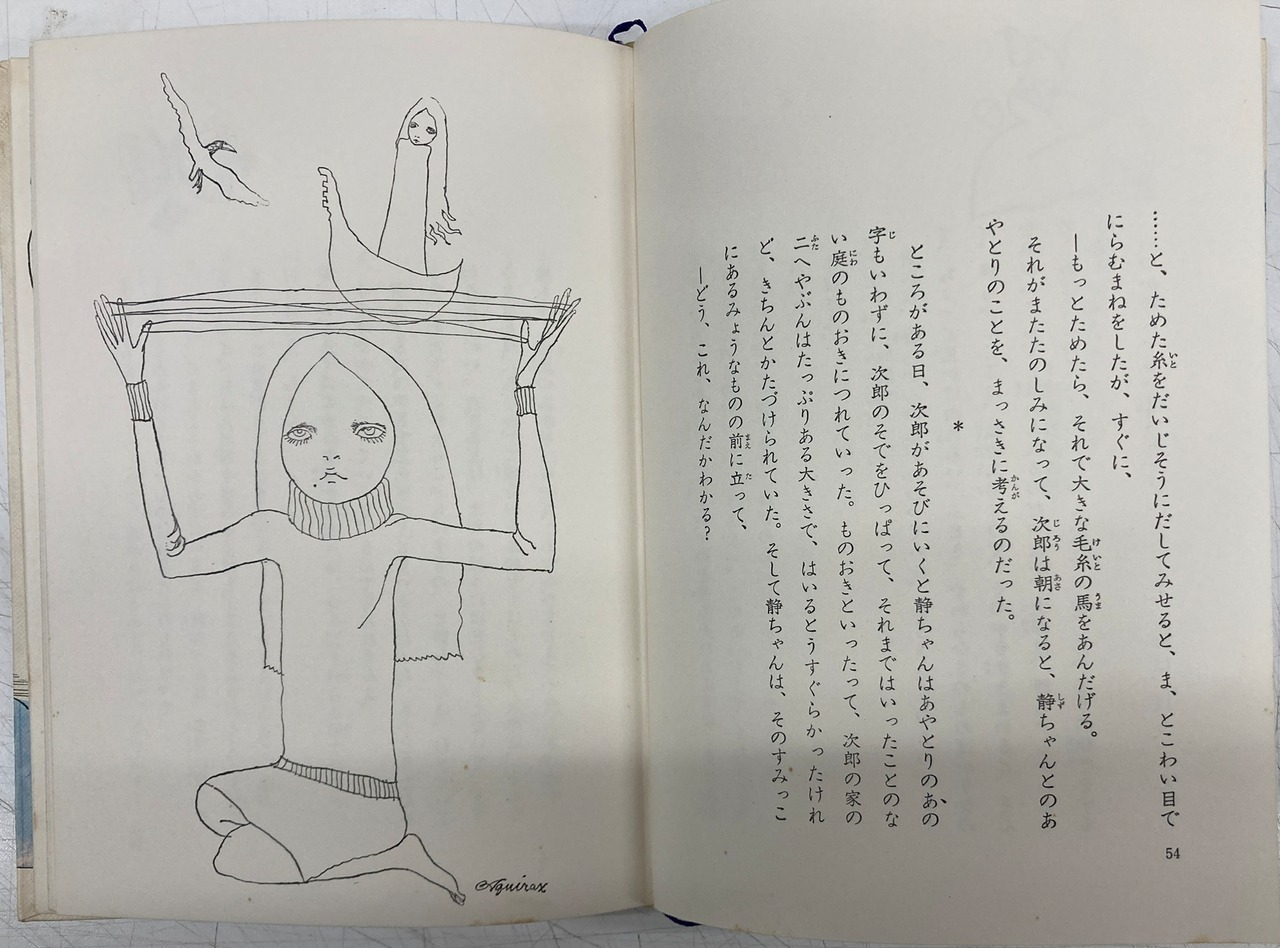 ……と、ためた糸をだいじそうにだしてみせると、ま、とこわい目で
にらむまねをしたが、すぐに、
―もっとためたら、それで大きな毛糸の馬をあんだげる。
それがまたたのしみになって、次郎は朝になると、静ちゃんとのあ
やとりのことを、まっさきに考えるのだった。
*
ところがある日、次郎があそびにいくと静ちゃんはあやとりのあの
字もいわずに、次郎のそでをひっぱって、それまではいったことのな
い庭のものおきにつれていった。ものおきといったって、次郎の家の
二へやぶんはたっぷりある大きさで、はいるとうすぐらかったけれ
ど、きちんとかたづけられていた。そして静ちゃんは、そのすみっこ
にあるみょうなものの前に立って、
―どう、これ、なんだかわかる?
54
Aquirax